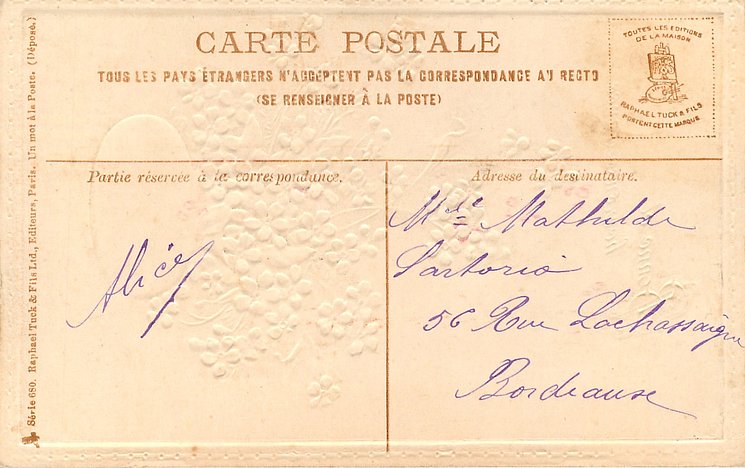 CARTE POSTALE
TOUS LES PAYS ÉTRANGERS N'ACCEPTENT PAS LA CORRESPONDANCE AU RECTO
(SE RENSEIGNER À LA POSTE)
TOUTES LES EDITIONS
DE LA MAISON
RAPHAEL TUCK & FILS
PORTENT CETTE MARQUE
Partie réservée à la correspondance.
Adresse du destinataire.
Alice
Mdle Mathilde
Sartorio
56 Rue Lachassaigne
Bordeaux
Série 680. Raphael Tuck & Fils Ltd., Editeurs, Paris. Un mot à la Poste. (Déposé.)